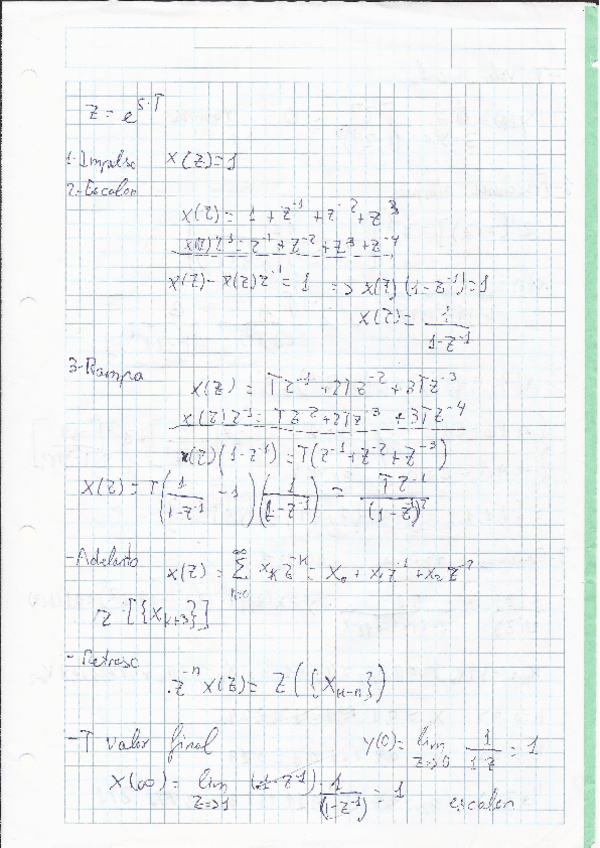 z = e^{s·T}
1-Impulso X(z)=1
2-Escalon
X(z) = 1 + z^{-1} + z^{-2} + z^{3}
X(z)z^{-1} = z^{-1} + z^{-2} + z^{-3} + z^{-4}
X(z) - X(z)z^{-1} = 1 => X(z)(1-z^{-1})=1
X(z) = 1/(1-z^{-1})
3-Rampa
X(z) = Tz^{-1} + 2Tz^{-2} + 3Tz^{-3}
X(z)z^{-1} = Tz^{-2} + 2Tz^{-3} + 3Tz^{-4}
X(z)(1-z^{-1}) = T(z^{-1} + z^{-2} + z^{-3})
X(z) = T(1/(1-z^{-1}) - 1)(1/(1-z^{-1})) = Tz^{-1}/(1-z^{-1})^2
-Adelanto
X(z) = ∑_{k=0}^{∞} x_k z^{-k} = x_0 + x_1 z^{-1} + x_2 z^{-2}
z[{x_{k+3}}]
-Retraso
z^{-n} X(z) = Z({x_{k-n}})
-T valor final Y(0) = lim_{z=>0} 1/(1-z) = 1
X(∞) = lim_{z=>1} (1-z^{-1}) 1/(1-z^{-1}) = 1 escalon